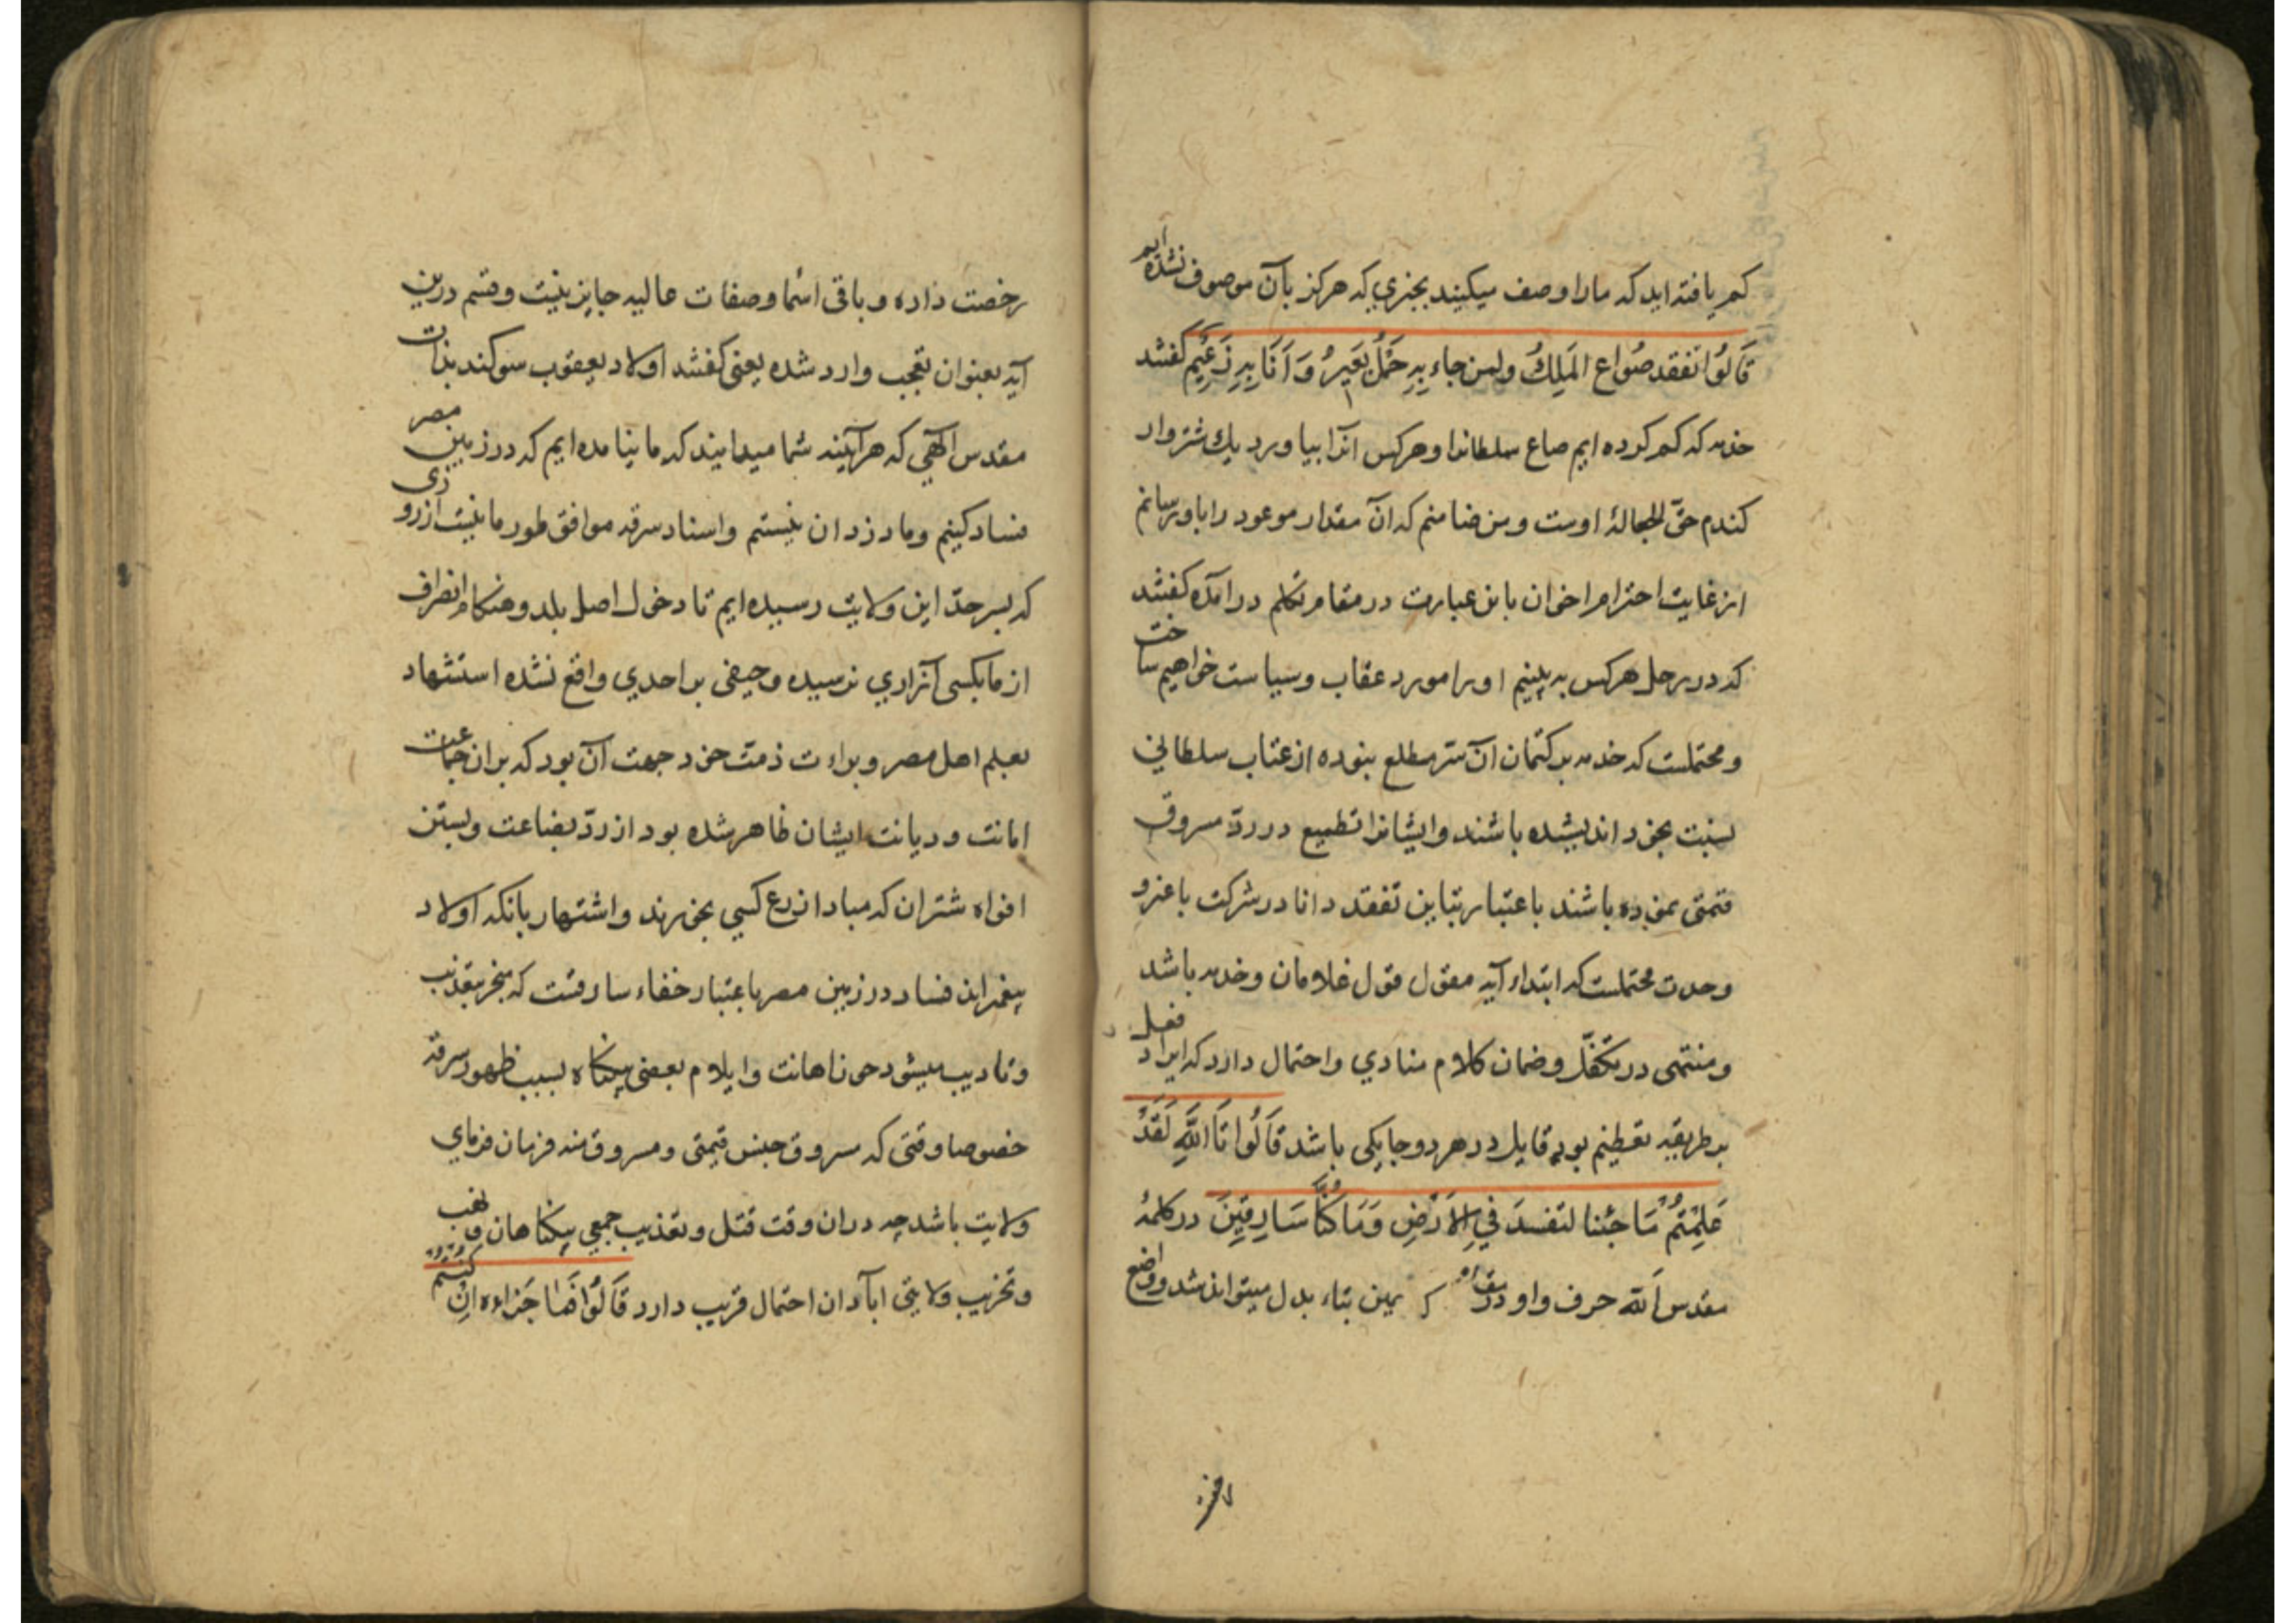 کم یافته اید که ما را وصف میکنید بچیزی که هرگز بآن موصوف نشده ایم
قَالُوا نَفْقِد صُوَاع المَلِكُ ولمن جاء بِهِ حَمْلُ بَعَيرٍ وَ اَنَا بِهِ زَعِیم کفتند
خدمه که کم کرده ایم صاع سلطانرا و هرکس آنرا بیاورد یك شتروار
کندم حقّ الجعالۀ اوست و من ضامنم که آن مقدار موعود را باو برسانم
از غایت احترام اخوان باین عبارت در مقام تکلم درآمده کفتند
که در رحل هرکس به بینیم او را مورد عقاب و سیاست خواهیم ساخت
و محتملست که خدمه بر کتمان آن سرّ مطلع نبوده از عتاب سلطانی
نسبت بخود اندیشیده باشند و ایشانرا تطمیع در ردّ مسروق
قیمتی نموده باشند باعتبار تباین تفقد و انا در شرکت باغیر و
وحدت محتملست که ابتداء آیه مقول قول غلامان و خدمه باشد
و منتهی در تکفّل و ضمان کلام منادی و احتمال دارد که ایراد فعل
بر طریقه تعظیم بود و قایل در هر دو جا یکی باشد قَالُوا تَا اللّٰهِ لَقَدْ
عَلِمْتُمْ مَا جئنا لنفسدَ فِي الاَرْضِ وَمَا كُنَّا سَارِقِينَ در کلمۀ
مقدس اللّٰه حرف واو در مقام یمین بتاء بدل میتواند شد و واضع
رخصت
رخصت داده و باقی اسما و صفات عالیه جایز نیست و قسم درین
آیه بعنوان تعجب وارد شده یعنی کفتند اولاد یعقوب سوکند بذات
مقدس آلهی که هرآینه شما میدانید که ما نیامده ایم که در زمین مصر
فساد کنیم و ما دزدان نیستم و اسناد سرقه موافق طور ما نیست از روزی
که بسرحدّ این ولایت رسیده ایم تا دخول اصل بلد و هنکام انصراف
از ما بکسی آزاری نرسیده و حیفی بر احدی واقع نشده استشهاد
بعلم اهل مصر و براءت ذمت خود جهت آن بود که بران جماعت
امانت و دیانت ایشان ظاهر شده بود از ردّ بضاعت و بستن
افواه شتران که مبادا زرع کسی بخورند و اشتهار بانکه اولاد
پیغمبراند فساد در زمین مصر باعتبار خفاء سارقست که منجر بتعذیب
و تادیب میشود حق نا اهانت و ایلام بعضی بیکناه بسبب ظهور سرقه
خصوصا وقتی که مسروق جنس قیمتی و مسروق منه فرمان فرمای
ولایت باشد چه دران وقت قتل و تعذیب جمعی بیکناهان و نهب
و تخریب ولایتی آبادان احتمال قریب دارد قَالُوا فَمَا جَزَاءه اِنْ كُنْتُمْ